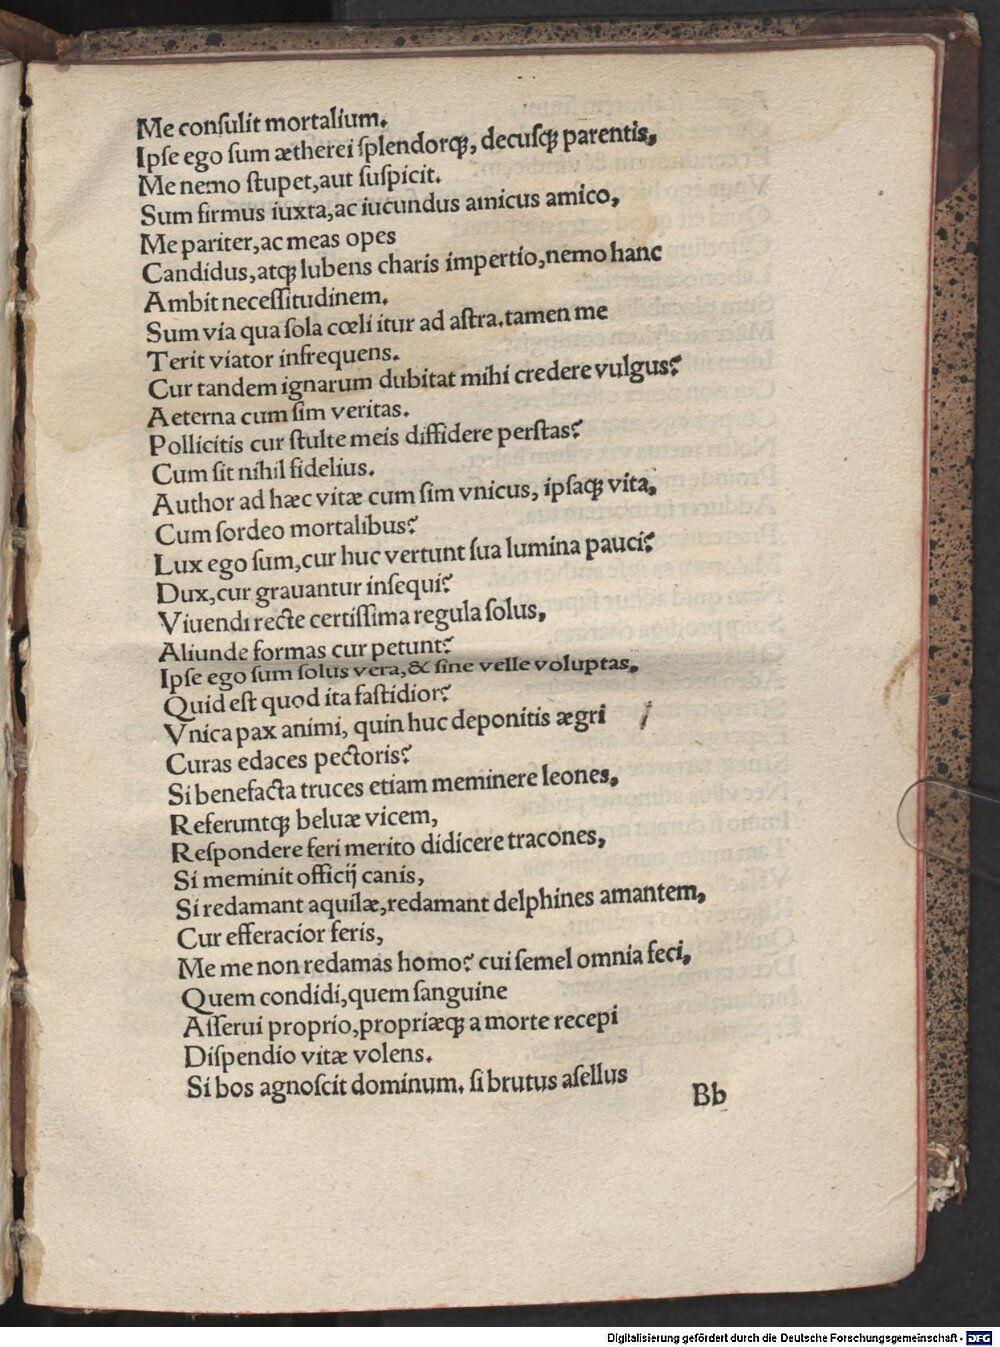 Me conſulit mortalium.
Ipſe ego ſum ætherei ſplendorqꝫ, decuſqꝫ parentis,
Me nemo ſtupet,aut ſuſpicit.
Sum firmus iuxta,ac iucundus amicus amico,
Me pariter,ac meas opes
Candidus,atqꝫ lubens charis impertio,nemo hanc
Ambit neceſſitudinem.
Sum via qua ſola cœli itur ad aſtra.tamen me
Terit viator infrequens.
Cur tandem ignarum dubitat mihi credere vulgus?
Aeterna cum ſim veritas.
Pollicitis cur ſtulte meis diffidere perſtas?
Cum ſit nihil fidelius.
Author ad hæc vitæ cum ſim vnicus, ipſaqꝫ vita,
Cum ſordeo mortalibus?
Lux ego ſum,cur huc vertunt ſua lumina pauci?
Dux,cur grauantur inſequi?
Viuendi recte certiſſima regula ſolus,
Aliunde formas cur petunt?
Ipſe ego ſum ſolus vera,& ſine velle voluptas,
Quid eſt quod ita faſtidior?
Vnica pax animi, quin huc deponitis ægri
Curas edaces pectoris?
Si benefacta truces etiam meminere leones,
Referuntqꝫ beluæ vicem,
Reſpondere feri merito didicere tracones,
Si meminit officij canis,
Si redamant aquilæ,redamant delphines amantem,
Cur efferacior feris,
Me me non redamas homo? cui ſemel omnia feci,
Quem condidi,quem ſanguine
Aſſerui proprio,propriæqꝫ a morte recepi
Diſpendio vitæ volens.
Si bos agnoſcit dominum. ſi brutus aſellus
Bb
Digitalisierung gefördert durch die Deutsche Forschungsgemeinschaft - DFG